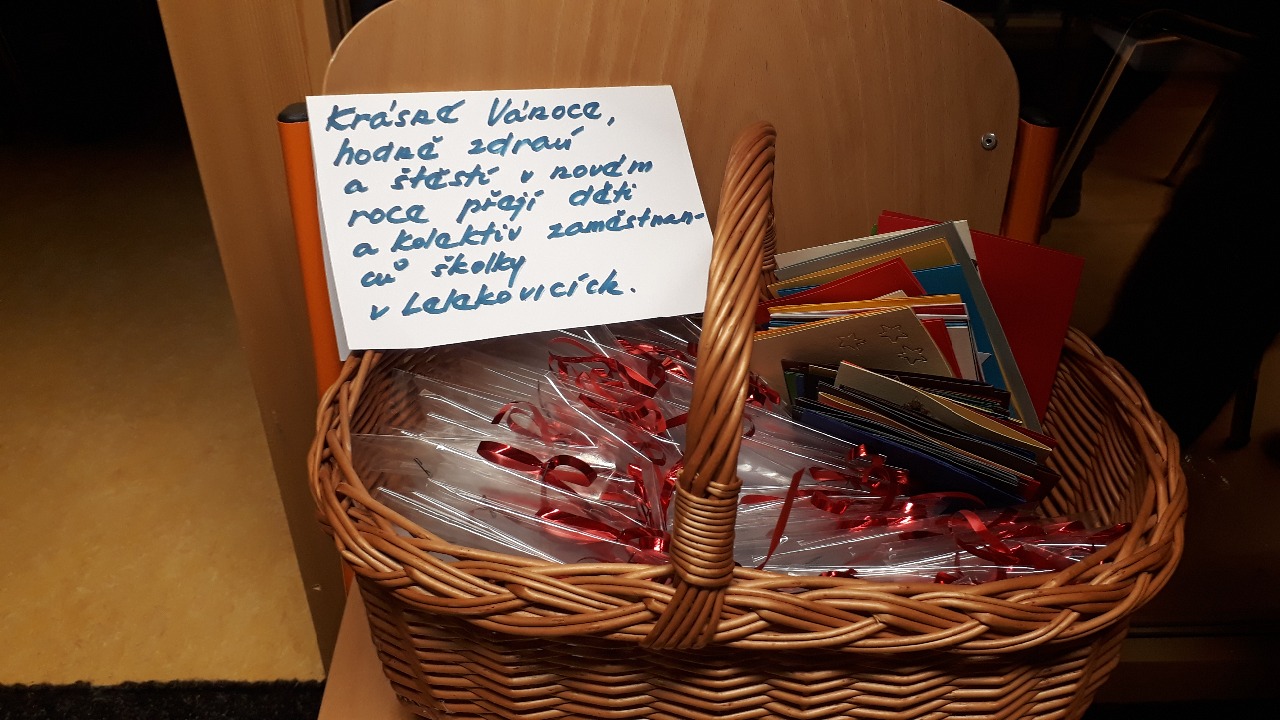 Krásné Vánoce,
hodně zdraví
a štěstí v novém
roce přejí děti
a kolektiv zaměstnan-
ců školky
v Lelekovicích.